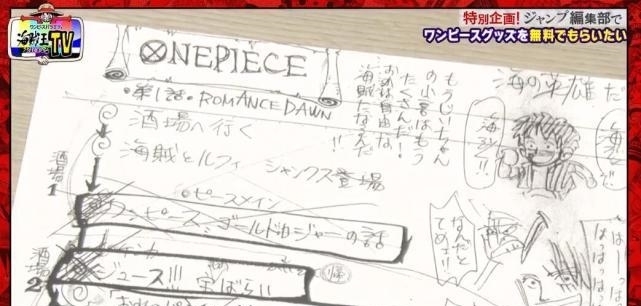 ワンピースバラエティ
海賊王
TV
特別企画!ジャンプ編集部で
ワンピースグッズを無料でもらいたい
ONEPIECE
・第1話・ROMANCE DAWN
酒場へ行く
海賊とルフィ シャンクス登場
・ピースメイン
ワンピース、ゴールド・ロジャーの話
ジュース!!!
酒場
1
酒場
2
帰
もうじいちゃん
の小言はもう
たくさんだ!
おれは自由な
海賊になるんだ
海の英雄だ
なんだと
てめェ!!
はっはっは